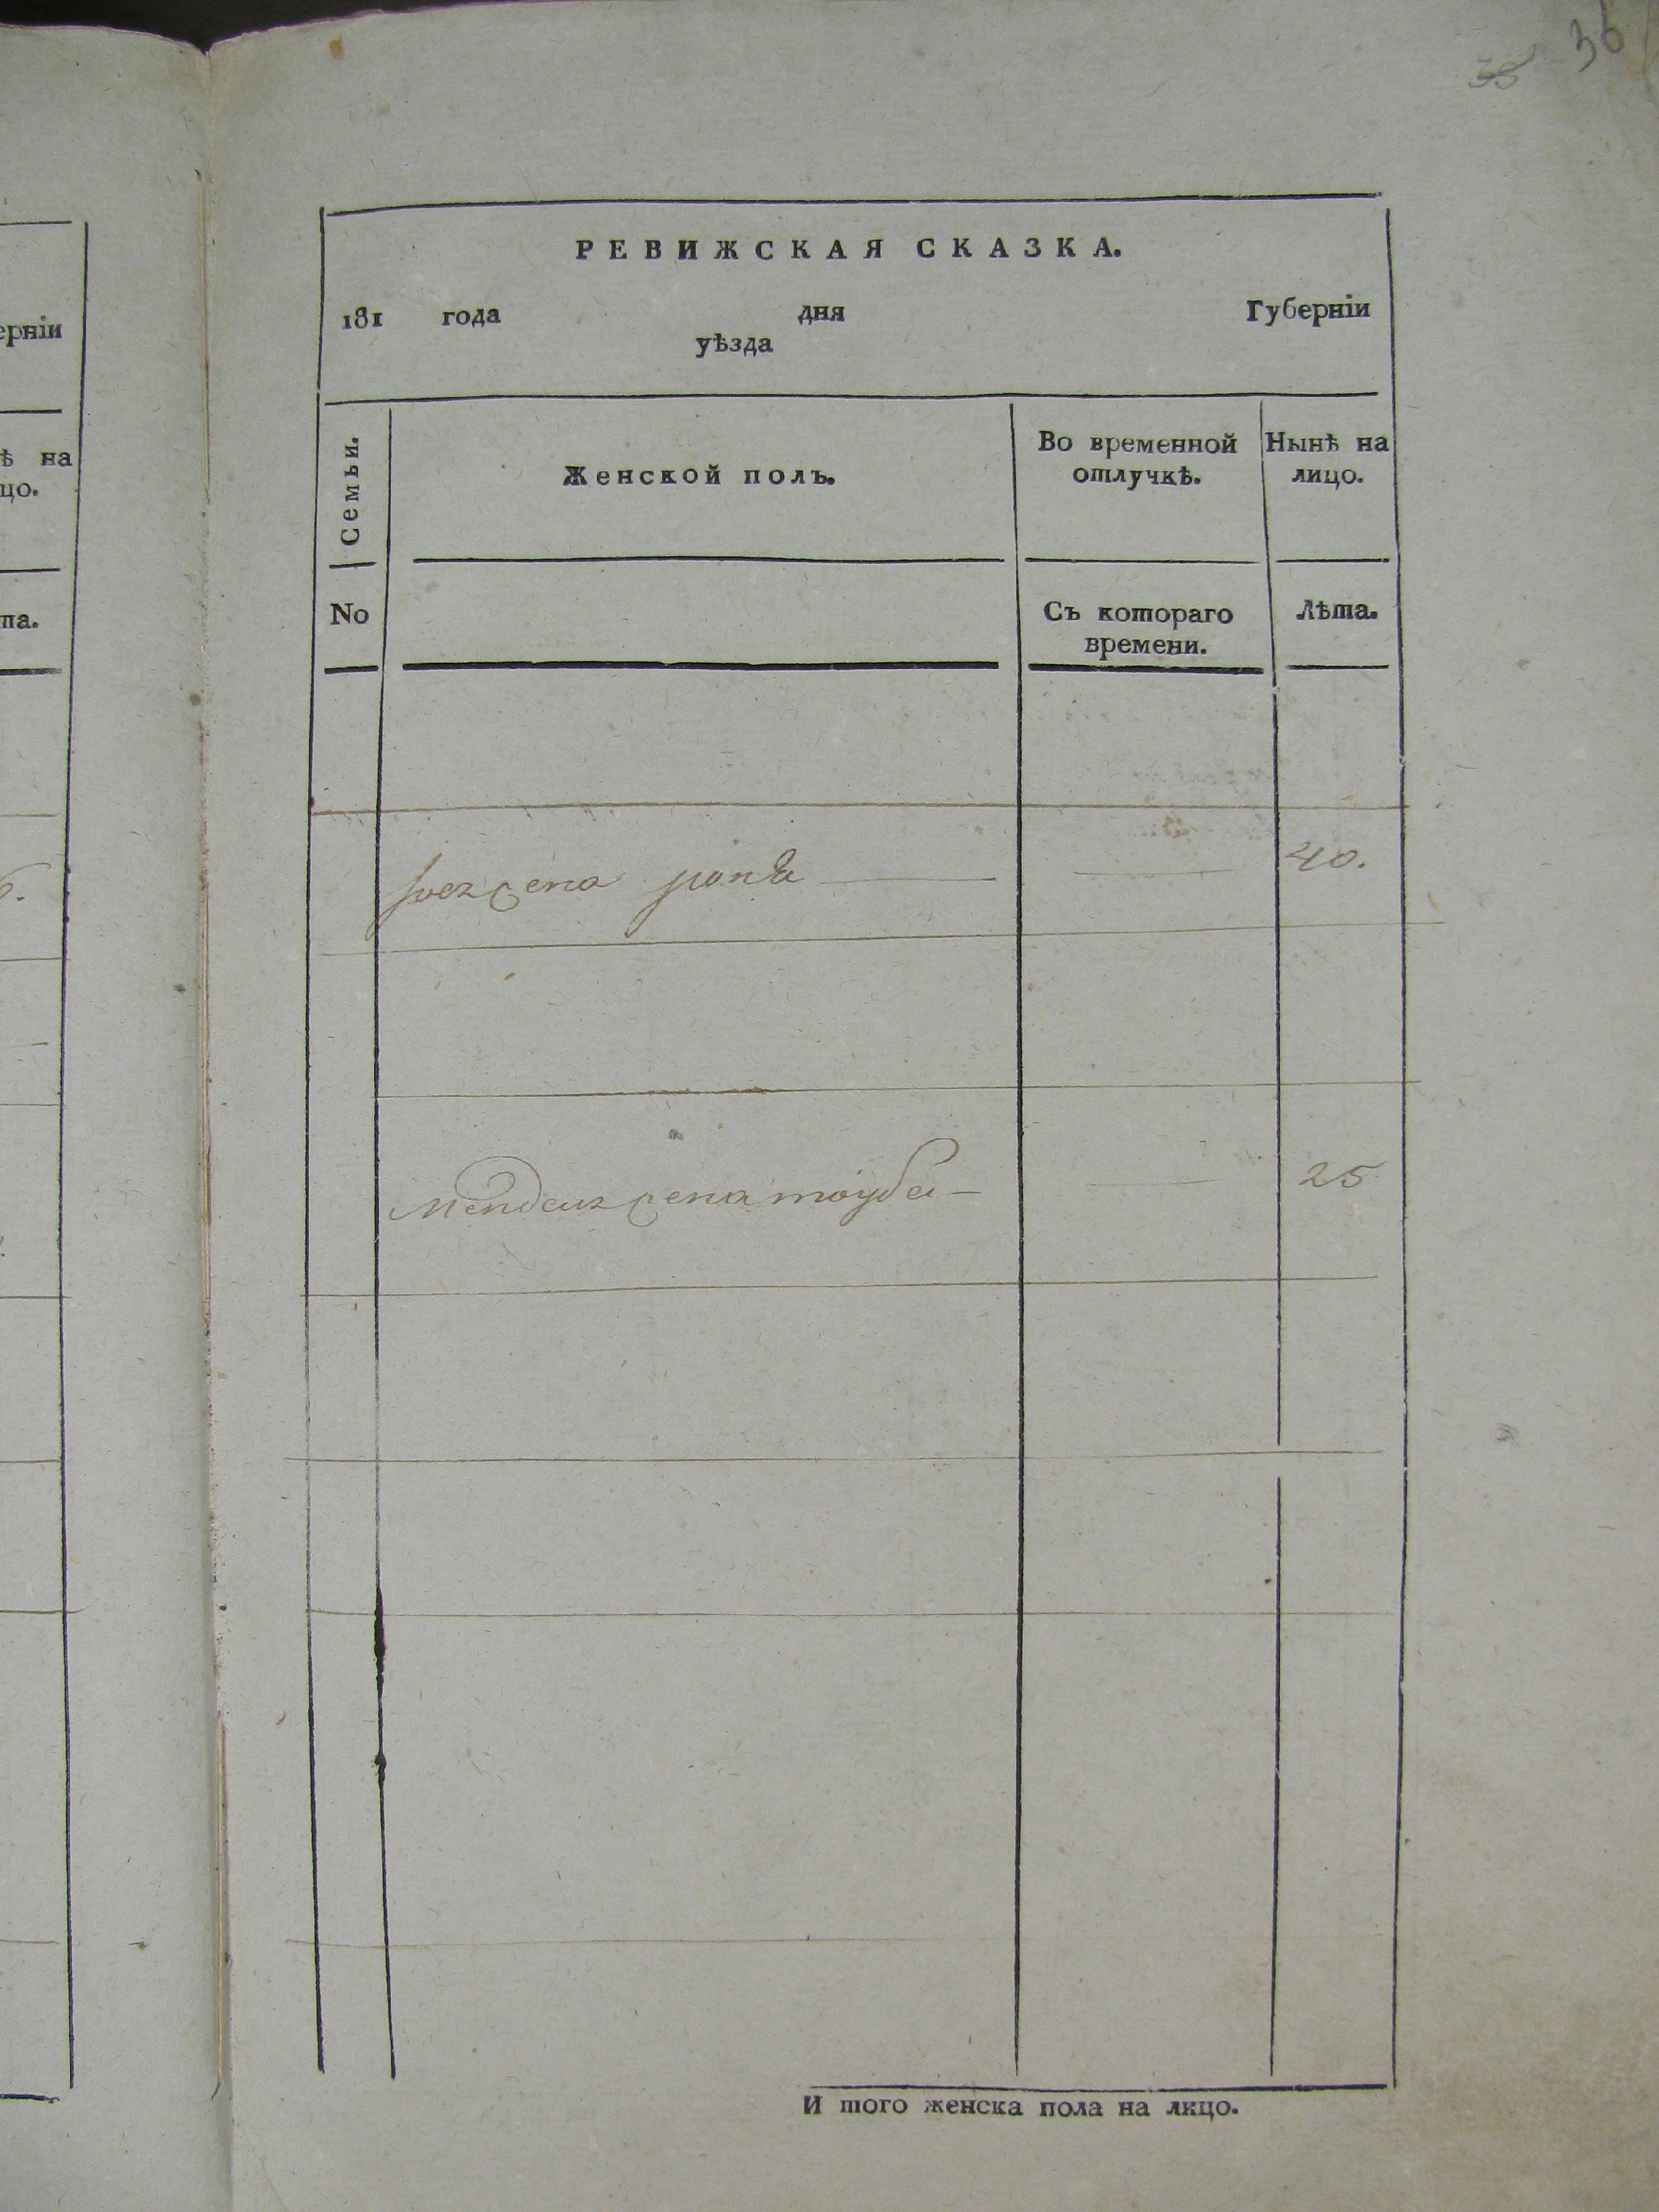 36
35
РЕВИЖСКАЯ СКАЗКА.
181 года дня Губерніи
уѣзда
Семьи.
Женской полъ.
Во временной отлучкѣ.
Нынѣ на лицо.
No
Съ котораго времени.
Лѣта.
жена 40.
Мендель жена тойба 25
И того женска пола на лицо.
ерніи
ѣ на
цо.
та.